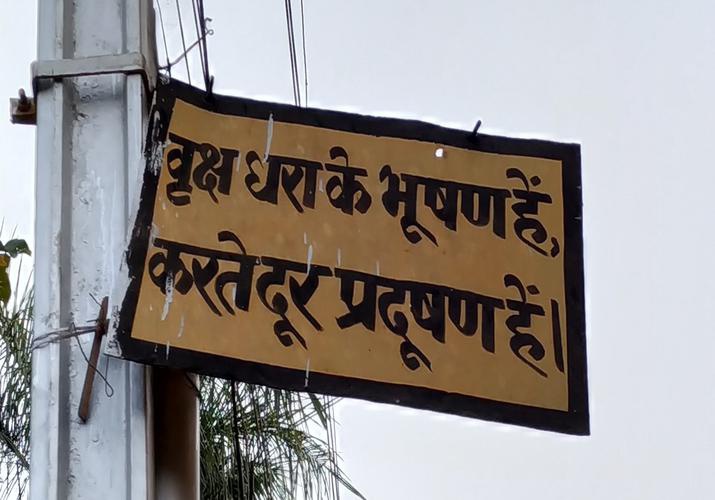 वृक्ष धरा के भूषण हैं,
करते दूर प्रदूषण हैं।